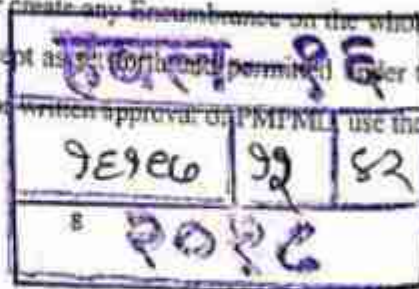 create any Encumbrance on the
as set forth and permitted under
written approval of PMPML, use the
हवल - १६
१६१९७ १२ ४२
8
२०१८